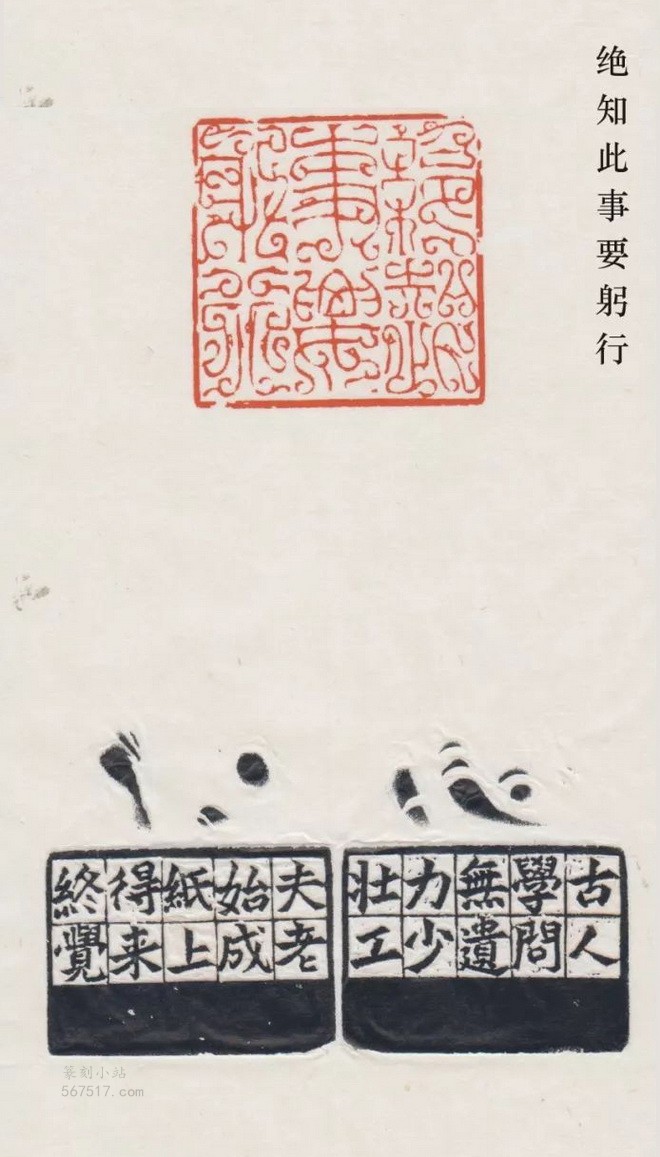 绝知此事要躬行
古人
學問
無遺
力少
壯工
夫老
始成
紙上
得来
終覺
篆刻小站
567517.com